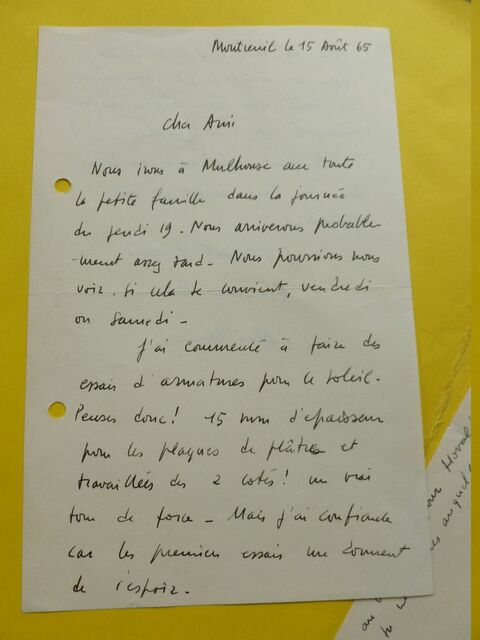 Montreuil le 15 Août 65
Cher Ami
Nous irons à Mulhouse avec toute
la petite famille dans la journée
du jeudi 19. Nous arriverons probable
-ment assez tard. Nous pourrions nous
voir. si cela te convient, vendredi
ou samedi -
J'ai commencé à faire des
essais d'armatures pour le soleil.
Penses donc! 15 mm d'épaisseur
pour les plaques de plâtres et
travaillées des 2 cotés! un vrai
tour de force - Mais j'ai confiance
car les premiers essais me donnent
de l'espoir.